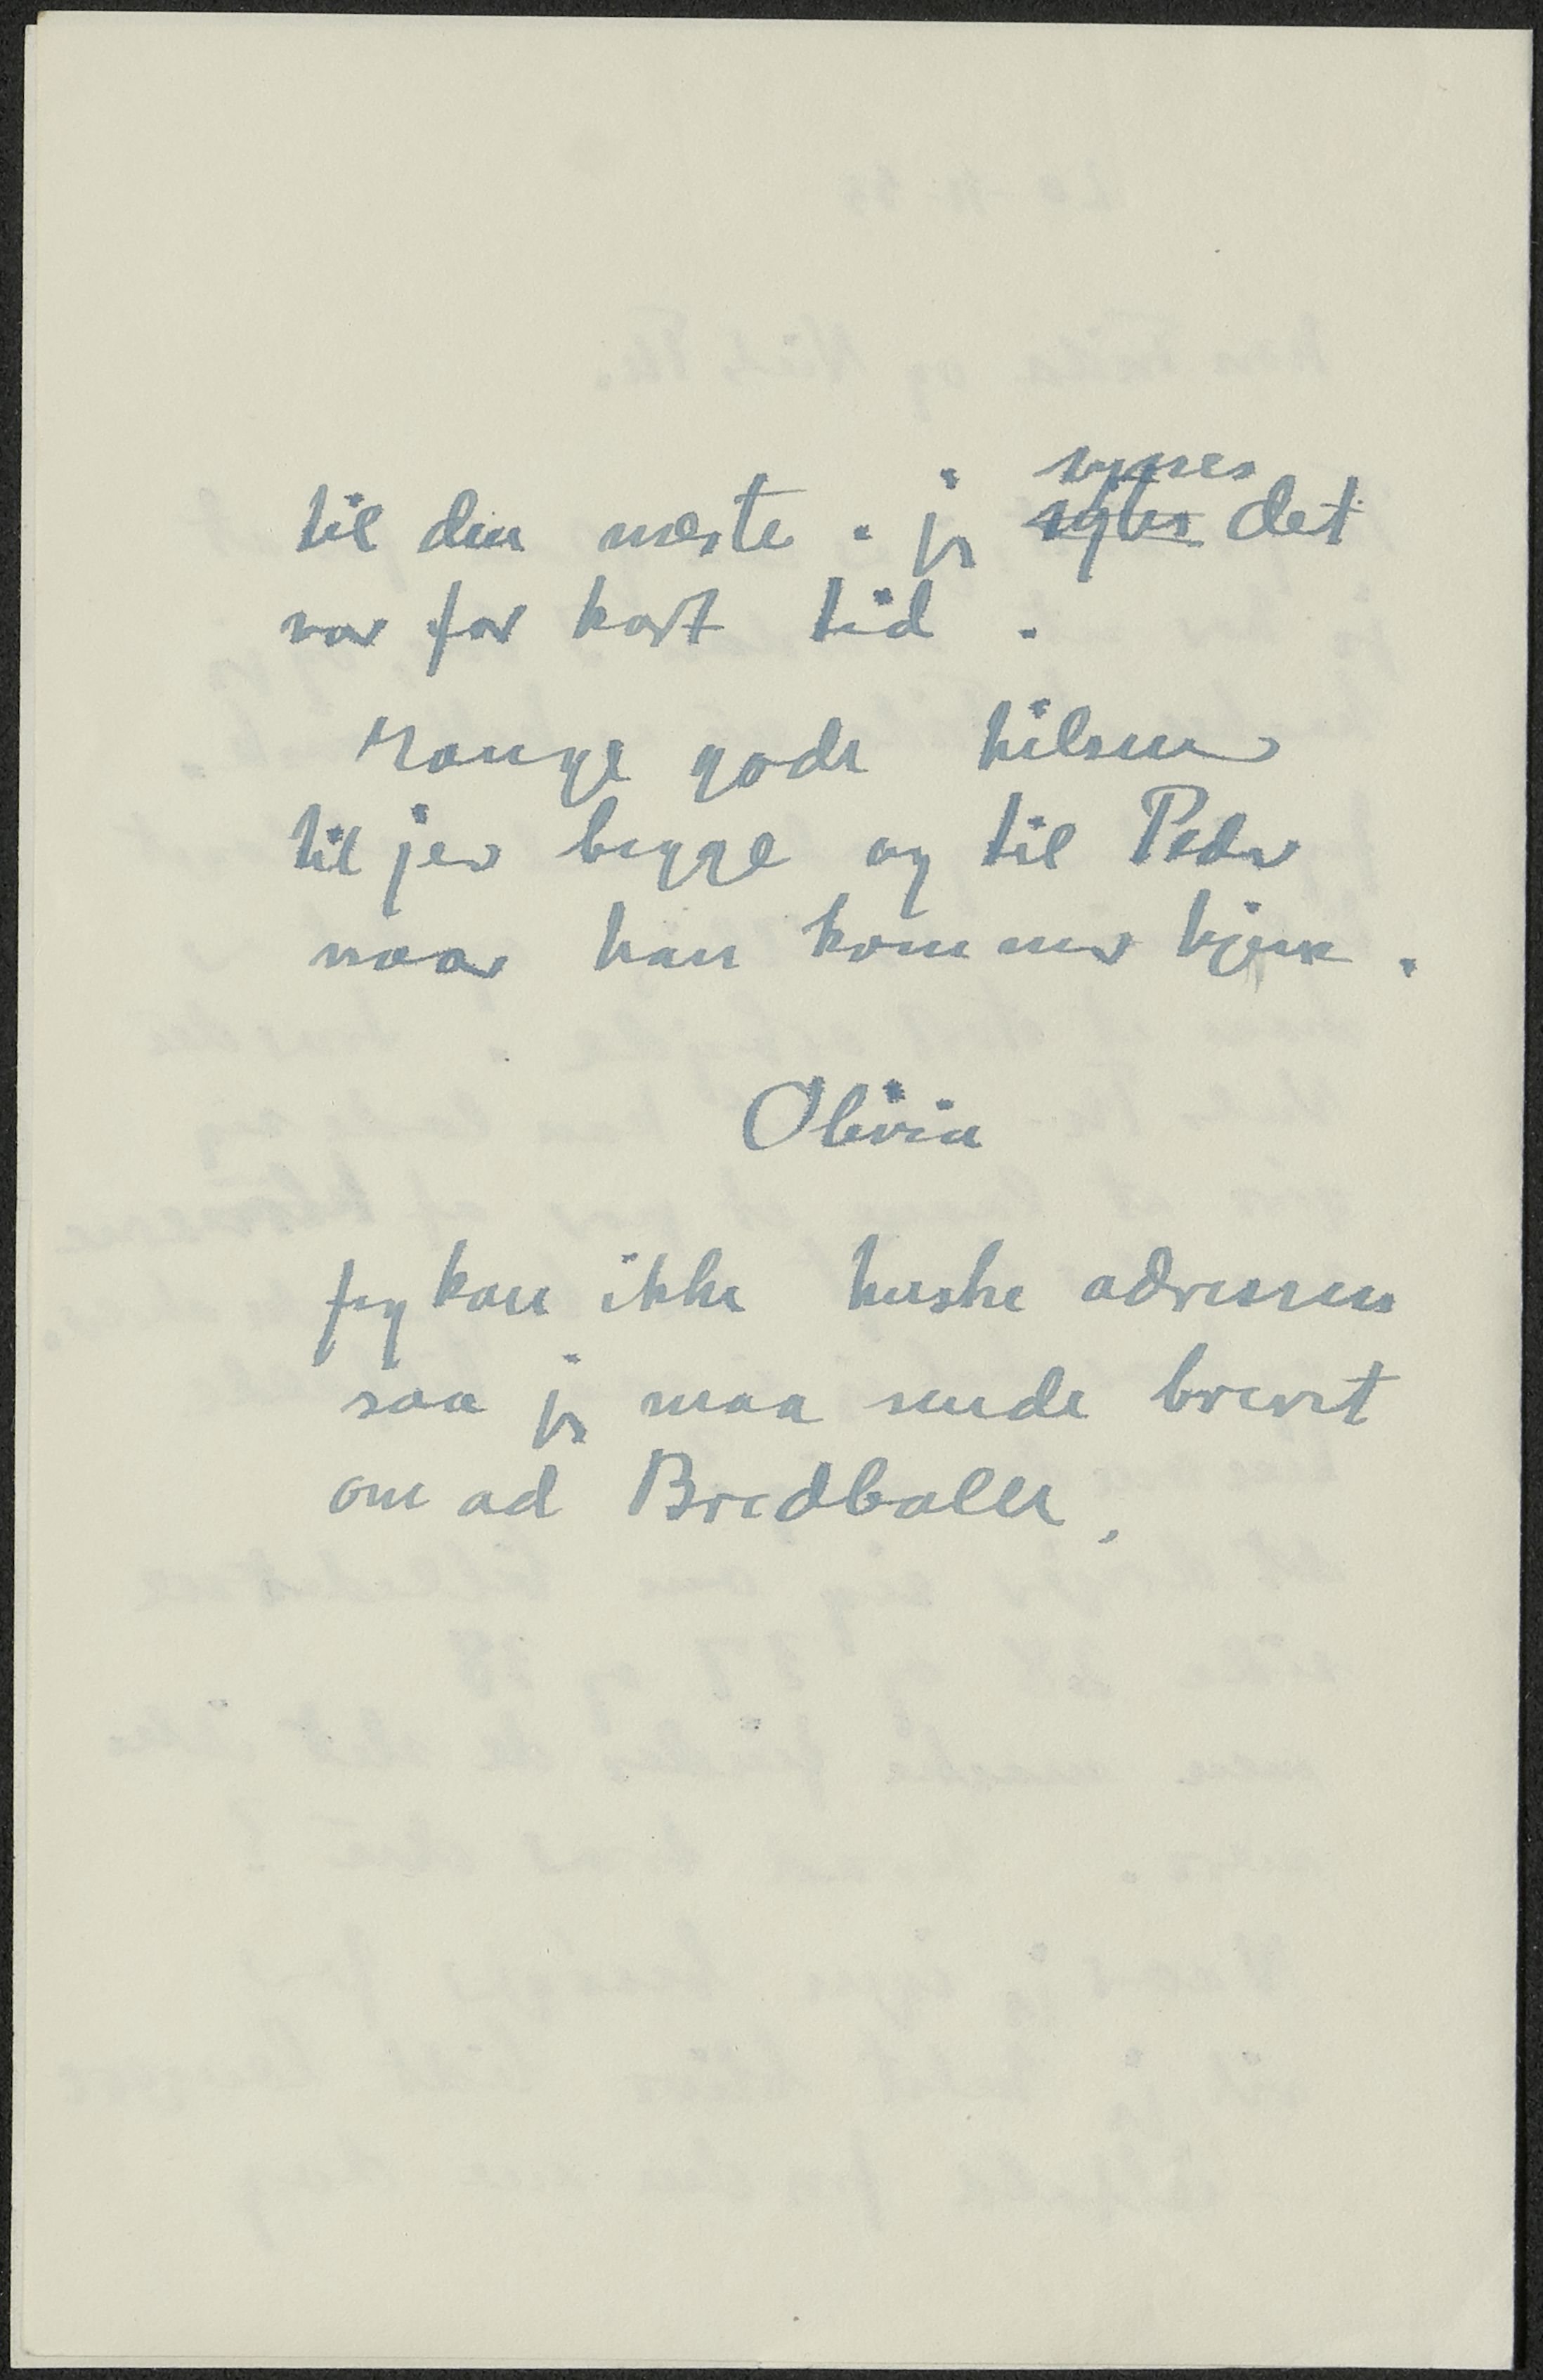 til den næste. jeg synes det
var for kort tid.
Mange gode hilsner
til jer begge og til Peder
naar han kommer hjem.
Olivia
Jeg kan ikke huske adressen
saa jeg maa sende brevet
om ad Bredballe.